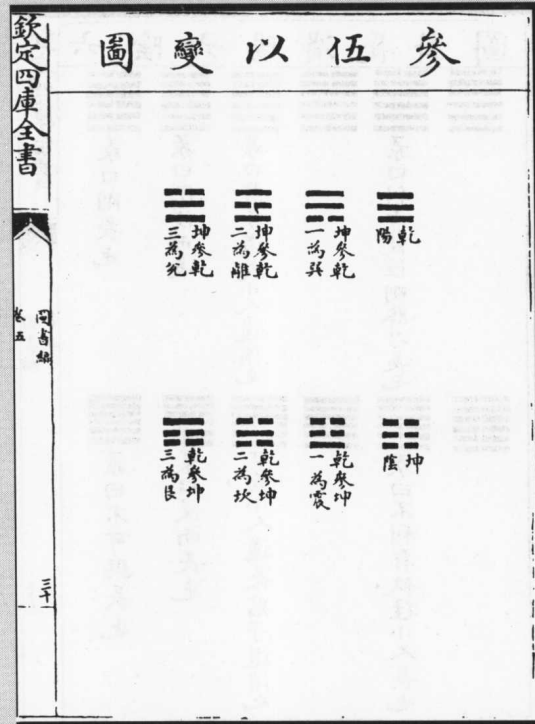 參伍以變圖
乾
陽
坤參乾
一為巽
坤參乾
二為離
坤參乾
三為兌
坤
陰
乾參坤
一為震
乾參坤
二為坎
乾參坤
三為艮
欽定四庫全書
圖書編
卷五
三十